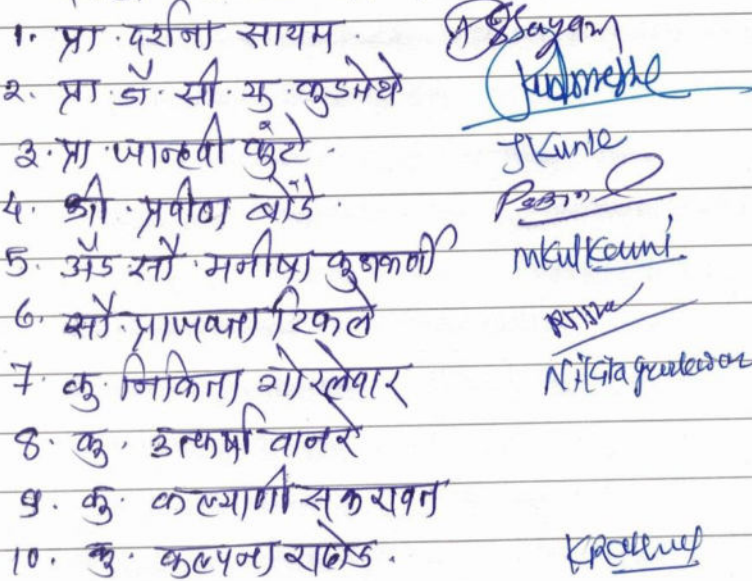 1. प्रा. दर्शना सायम. Sayam
२. प्रा. डॉ. सी. यु. कुडमेथे Kudmethe
३. प्रा. जान्हवी कुंटे. JKunte
4. श्री. प्रवीण बोंडे.
5. अॅड सौ. मनीषा कुळकर्णी mkulkarni
6. सौ. प्राजक्ता टिकले
7. कु. निकिता गोरलेवार Nikita
8. कु. उत्कर्षा वानरे
9. कु. कल्याणी
10. कु. कल्पना राठोड. KRathod